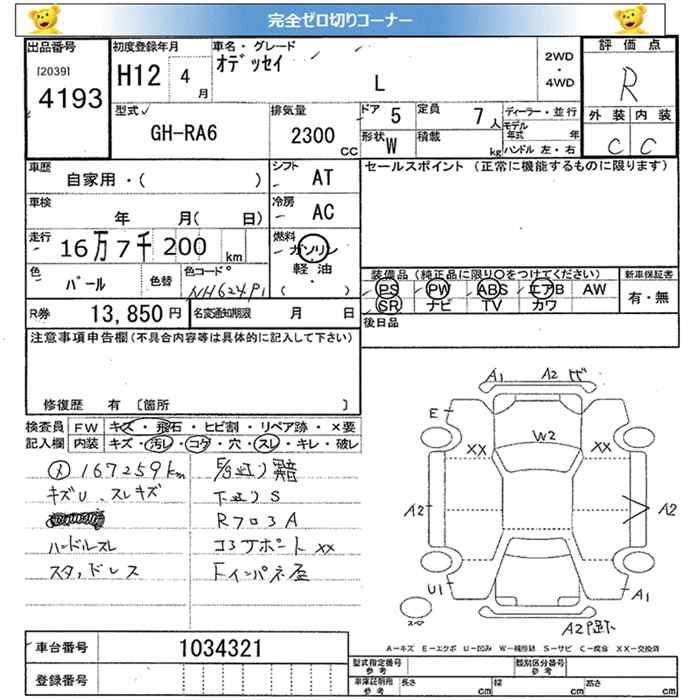 完全ゼロ切りコーナー
出品番号
[2039]
4193
初度登録年月
H12 4月
車名・グレード
オデッセイ
L
2WD
・
4WD
評価点
R
外装 内装
C C
型式
GH-RA6
排気量
2300 CC
ドア 5
定員 7人
形状 W
積載 kg
ディーラー・並行
モデル年式 年
ハンドル 左・右
車歴
自家用・( )
シフト AT
セールスポイント (正常に機能するものに限ります)
車検
年 月( 日)
冷房 AC
走行
16万7千200 km
燃料
ガソリン
軽油
・
( )
色
パール
色替
色コード
NH624P1
装備品 (純正品に限り〇をつけてください)
新車保証書
PS PW ABS エアB AW
SR ナビ TV カワ
有・無
R券 13,850円
名変通知期限 月 日
後日品
注意事項申告欄(不具合内容等は具体的に記入して下さい)
修復歴 有 〔箇所 〕
検査員
記入欄
FW キズ・飛石・ヒビ割・リペア跡・×要
内装 キズ・汚レ・コゲ・穴・スレ・キレ・破レ
167259km
キズU、スレキズ
ハンドルスレ
スタッドレス
下廻りS
Rフロ3A
コアサポートXX
A1 A2
E
W2
XX XX
A2 A2
U1 A1
A2
A-キズ E-エクボ U-凹み W-補修跡 S-サビ C-腐食 XX-交換済
車台番号 1034321
登録番号
型式指定番号
参考
類別区分番号
参考
車庫証明用
参考
長さ cm
幅 cm
高さ cm